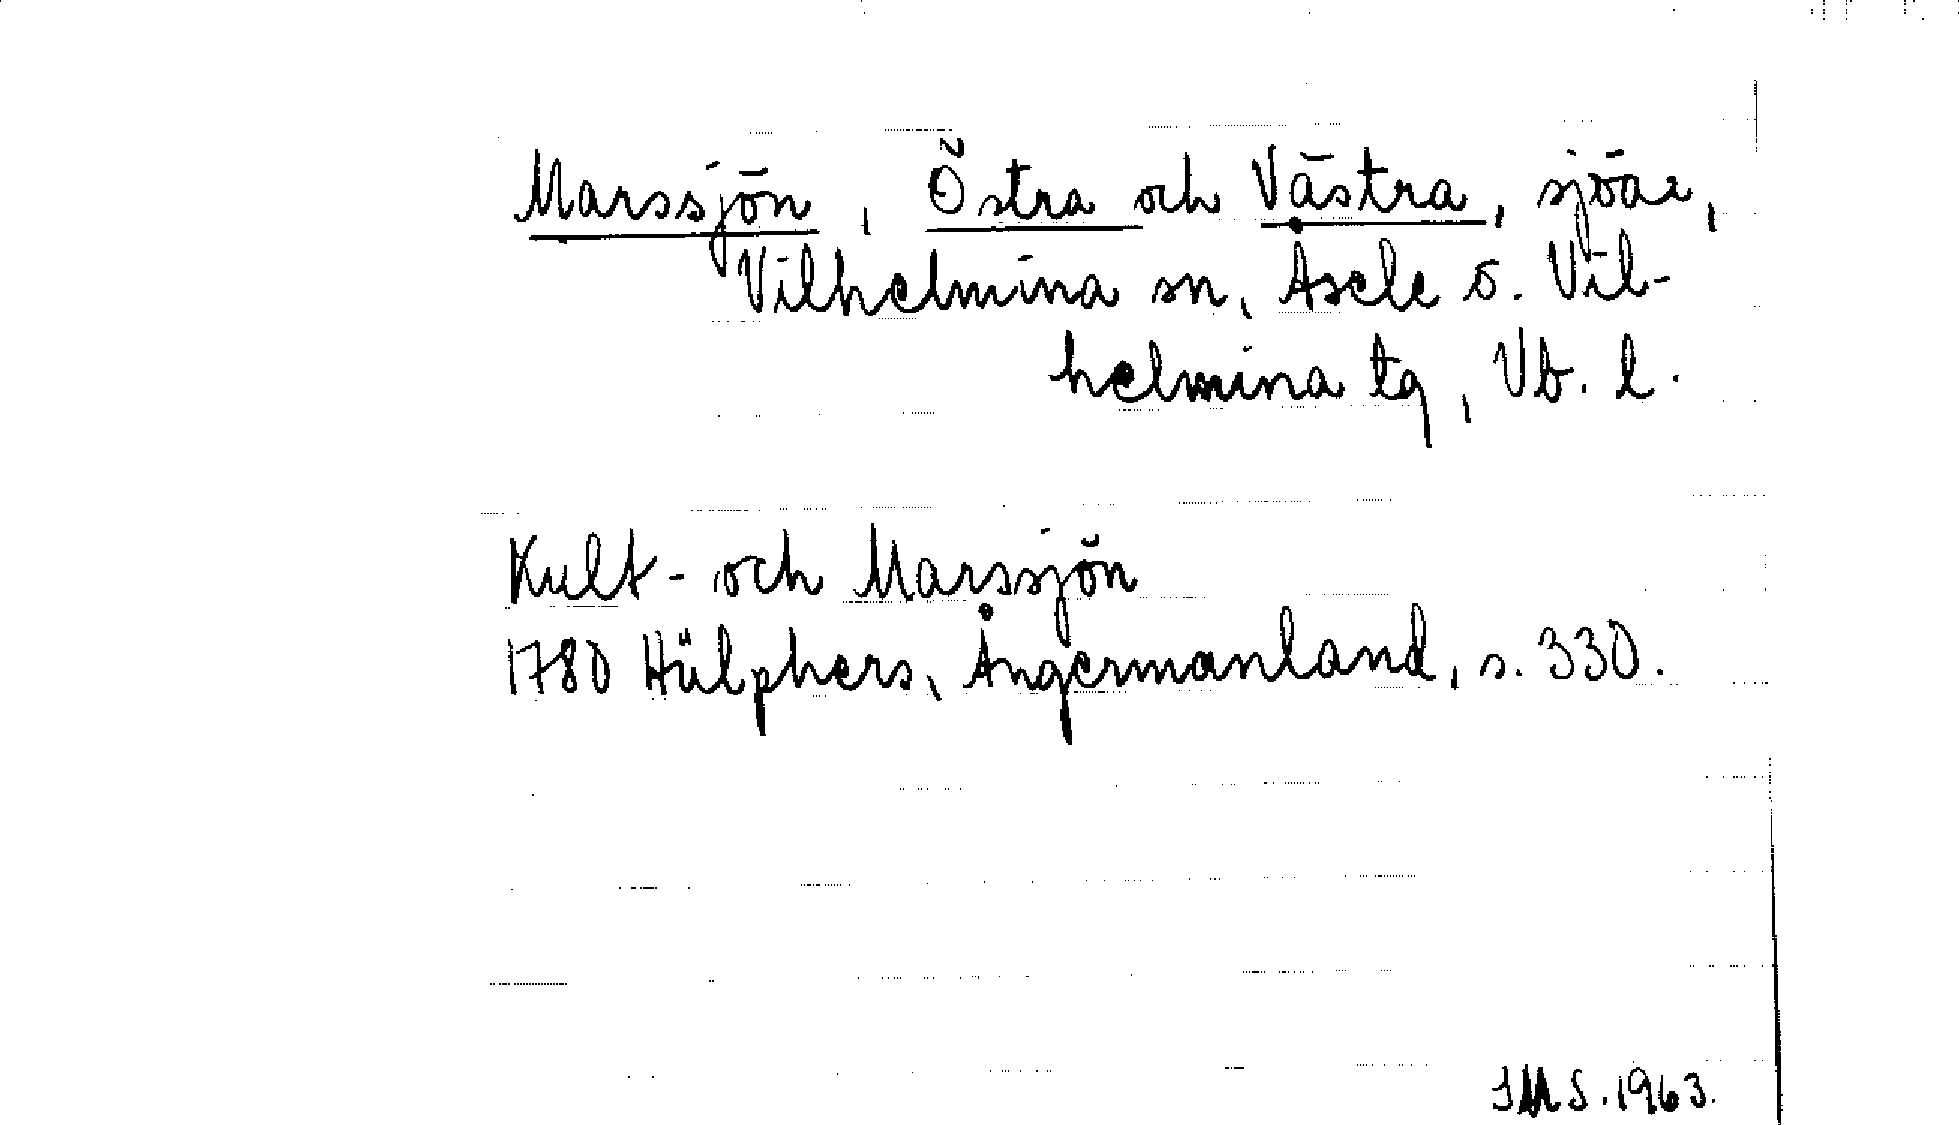 Marssjön, Östra och Västra, sjöar,
Vilhelmina sn, Åsele o. Vil-
helmina tg, Vb. l.
Kult- och Marssjön
1780 Hülphers, Ångermanland, s. 330.
IMS. 1963.